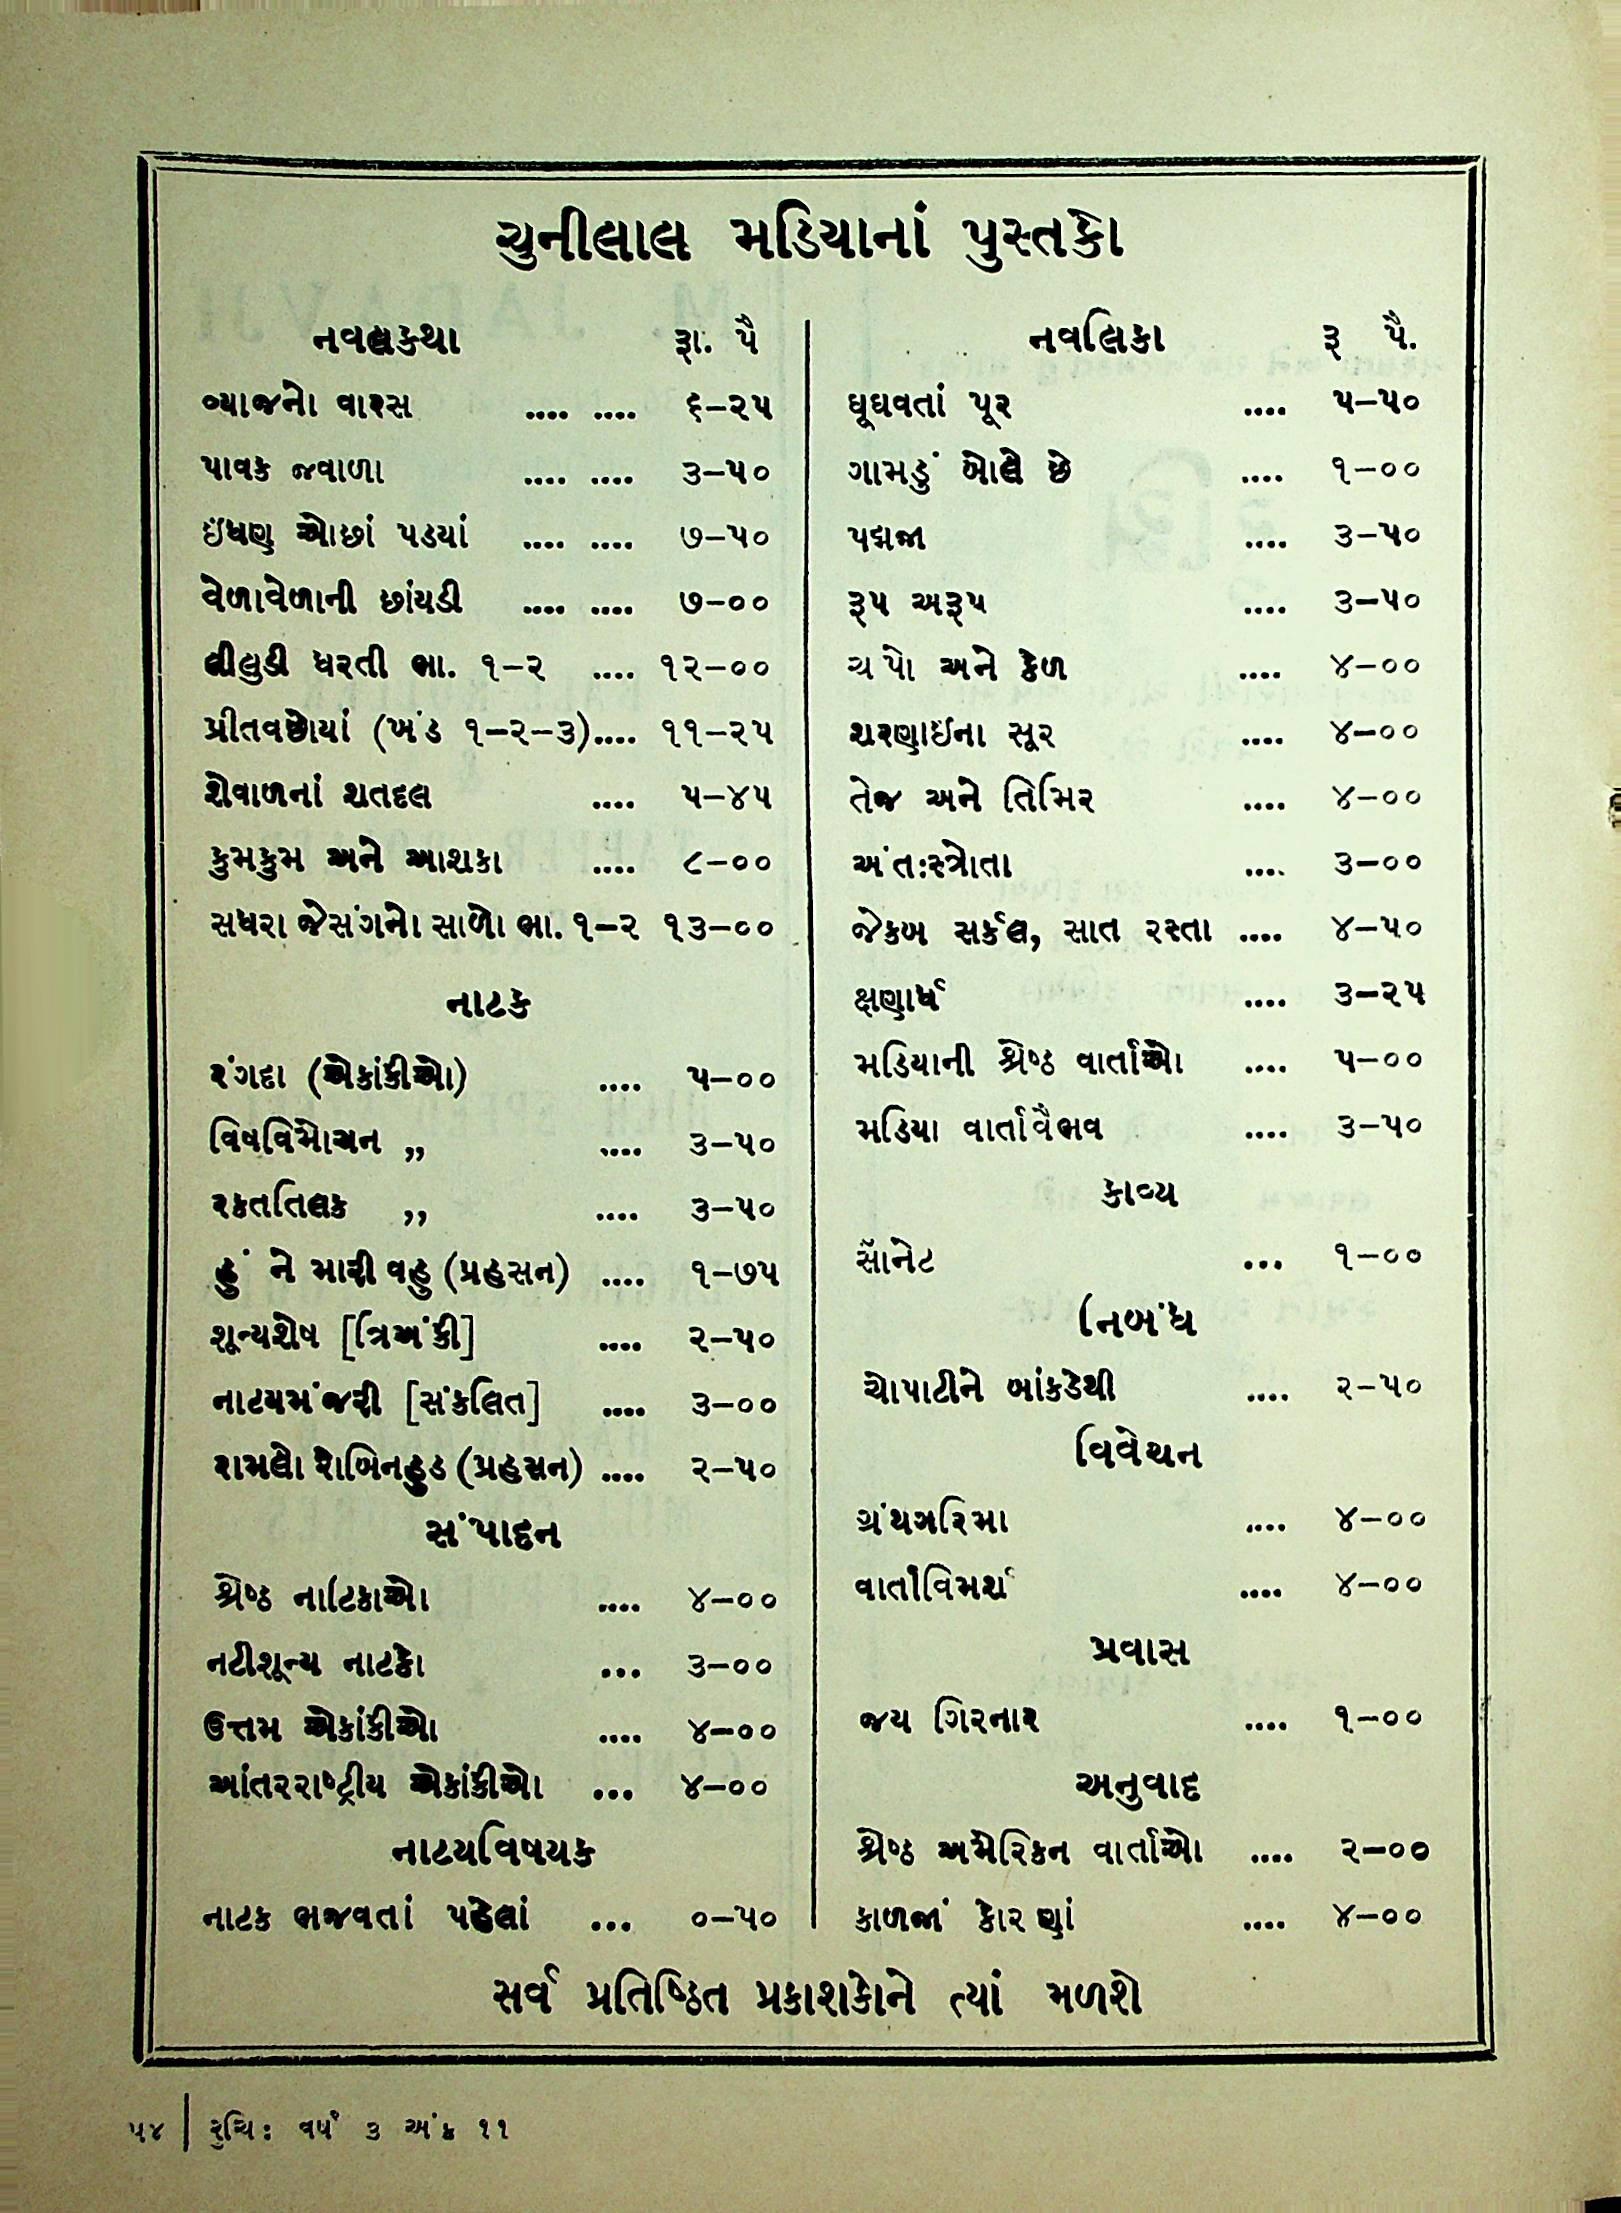 ચુનીલાલ મડિયાનાં પુસ્તકો
નવલકથા રૂા. પૈ
વ્યાજનો વારસ .... .... ૬–૨૫
પાવક જવાળા .... .... ૩–૫૦
ઇંધણ ઓછાં પડયાં .... .... ૭–૫૦
વેળાવેળાની છાંયડી .... .... ૭–૦૦
લીલુડી ધરતી ભા. ૧–૨ .... ૧૨–૦૦
પ્રીતવછોયાં (ખંડ ૧–૨–૩).... ૧૧–૨૫
શેવાળનાં શતદલ .... ૫–૪૫
કુમકુમ અને આશકા .... ૮–૦૦
સધરા જેસંગનો સાળો ભા. ૧–૨ ૧૩–૦૦
નાટક
રંગદા (એકાંકીઓ) .... ૫–૦૦
વિષવિમોચન ,, .... ૩–૫૦
રકતતિલક ,, .... ૩–૫૦
હું ને મારી વહુ (પ્રહસન) .... ૧–૭૫
શૂન્યશેષ [ત્રિઅંકી] .... ૨–૫૦
નાટયમંજરી [સંકલિત] .... ૩–૦૦
રામલો રોબિનહુડ (પ્રહસન) .... ૨–૫૦
સંપાદન
શ્રેષ્ઠ નાટિકાઓ .... ૪–૦૦
નટીશૂન્ય નાટકો ... ૩–૦૦
ઉત્તમ એકાંકીઓ .... ૪–૦૦
આંતરરાષ્ટ્રીય એકાંકીઓ ... ૪–૦૦
નાટયવિષયક
નાટક ભજવતાં પહેલાં ... ૦–૫૦
નવલિકા રૂ પૈ.
ઘૂઘવતાં પૂર .... ૫–૫૦
ગામડું બોલે છે .... ૧–૦૦
પદ્મજા .... ૩–૫૦
રૂપ અરૂપ .... ૩–૫૦
ચંપો અને કેળ .... ૪–૦૦
શરણાઈના સૂર .... ૪–૦૦
તેજ અને તિમિર .... ૪–૦૦
અંત:સ્ત્રોતા .... ૩–૦૦
જેકબ સર્કલ, સાત રસ્તા .... ૪–૫૦
ક્ષણાર્ધ .... ૩–૨૫
મડિયાની શ્રેષ્ઠ વાર્તાઓ .... ૫–૦૦
મડિયા વાર્તાવૈભવ .... ૩–૫૦
કાવ્ય
સૉનેટ ... ૧–૦૦
નિબંધ
ચોપાટીને બાંકડેથી .... ૨–૫૦
વિવેચન
ગ્રંથગરિમા .... ૪–૦૦
વાર્તાવિમર્શ .... ૪–૦૦
પ્રવાસ
જય ગિરનાર .... ૧–૦૦
અનુવાદ
શ્રેષ્ઠ અમેરિકન વાર્તાઓ .... ૨–૦૦
કાળજાં કોરાણાં .... ૪–૦૦
સર્વ પ્રતિષ્ઠિત પ્રકાશકોને ત્યાં મળશે
૫૪ | રુચિ: વર્ષ ૩ અંક ૧૧